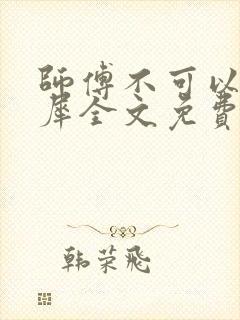 師傅不可以
犀全文免費
韩荣飛